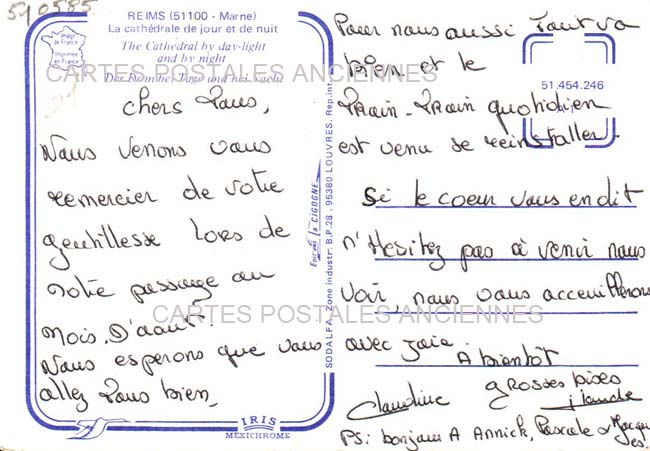 510585
REIMS (51100 - Marne)
La cathédrale de jour et de nuit
The Cathedral by day-light
and by night
Der Dom bei Tage und bei Nacht
Image de France
Imprimée en France
CARTES POSTALES ANCIENNES
chers Tous,
Nous venons vous
remercier de votre
gentillesse lors de
notre passage au
mois D'aout.
Nous esperons que vous
allez Tous bien
Editions la CIGOGNE
SODALFA, Zone Industr. B.P.28 - 95380 LOUVRES. Rep.int
IRIS
MEXICHROME
Pour nous aussi Tout va
bien et le
Train-Train quotidien
est venu se reinstaller.
51.454.246
si le coeur vous en dit
n'Hesitez pas à venir nous
voir, nous vous acceuillerons
avec joie.
A bientôt
grosses bises
Claudine
PS: bonjour A Annick, Pascale
CARTES POSTALES ANCIENNES